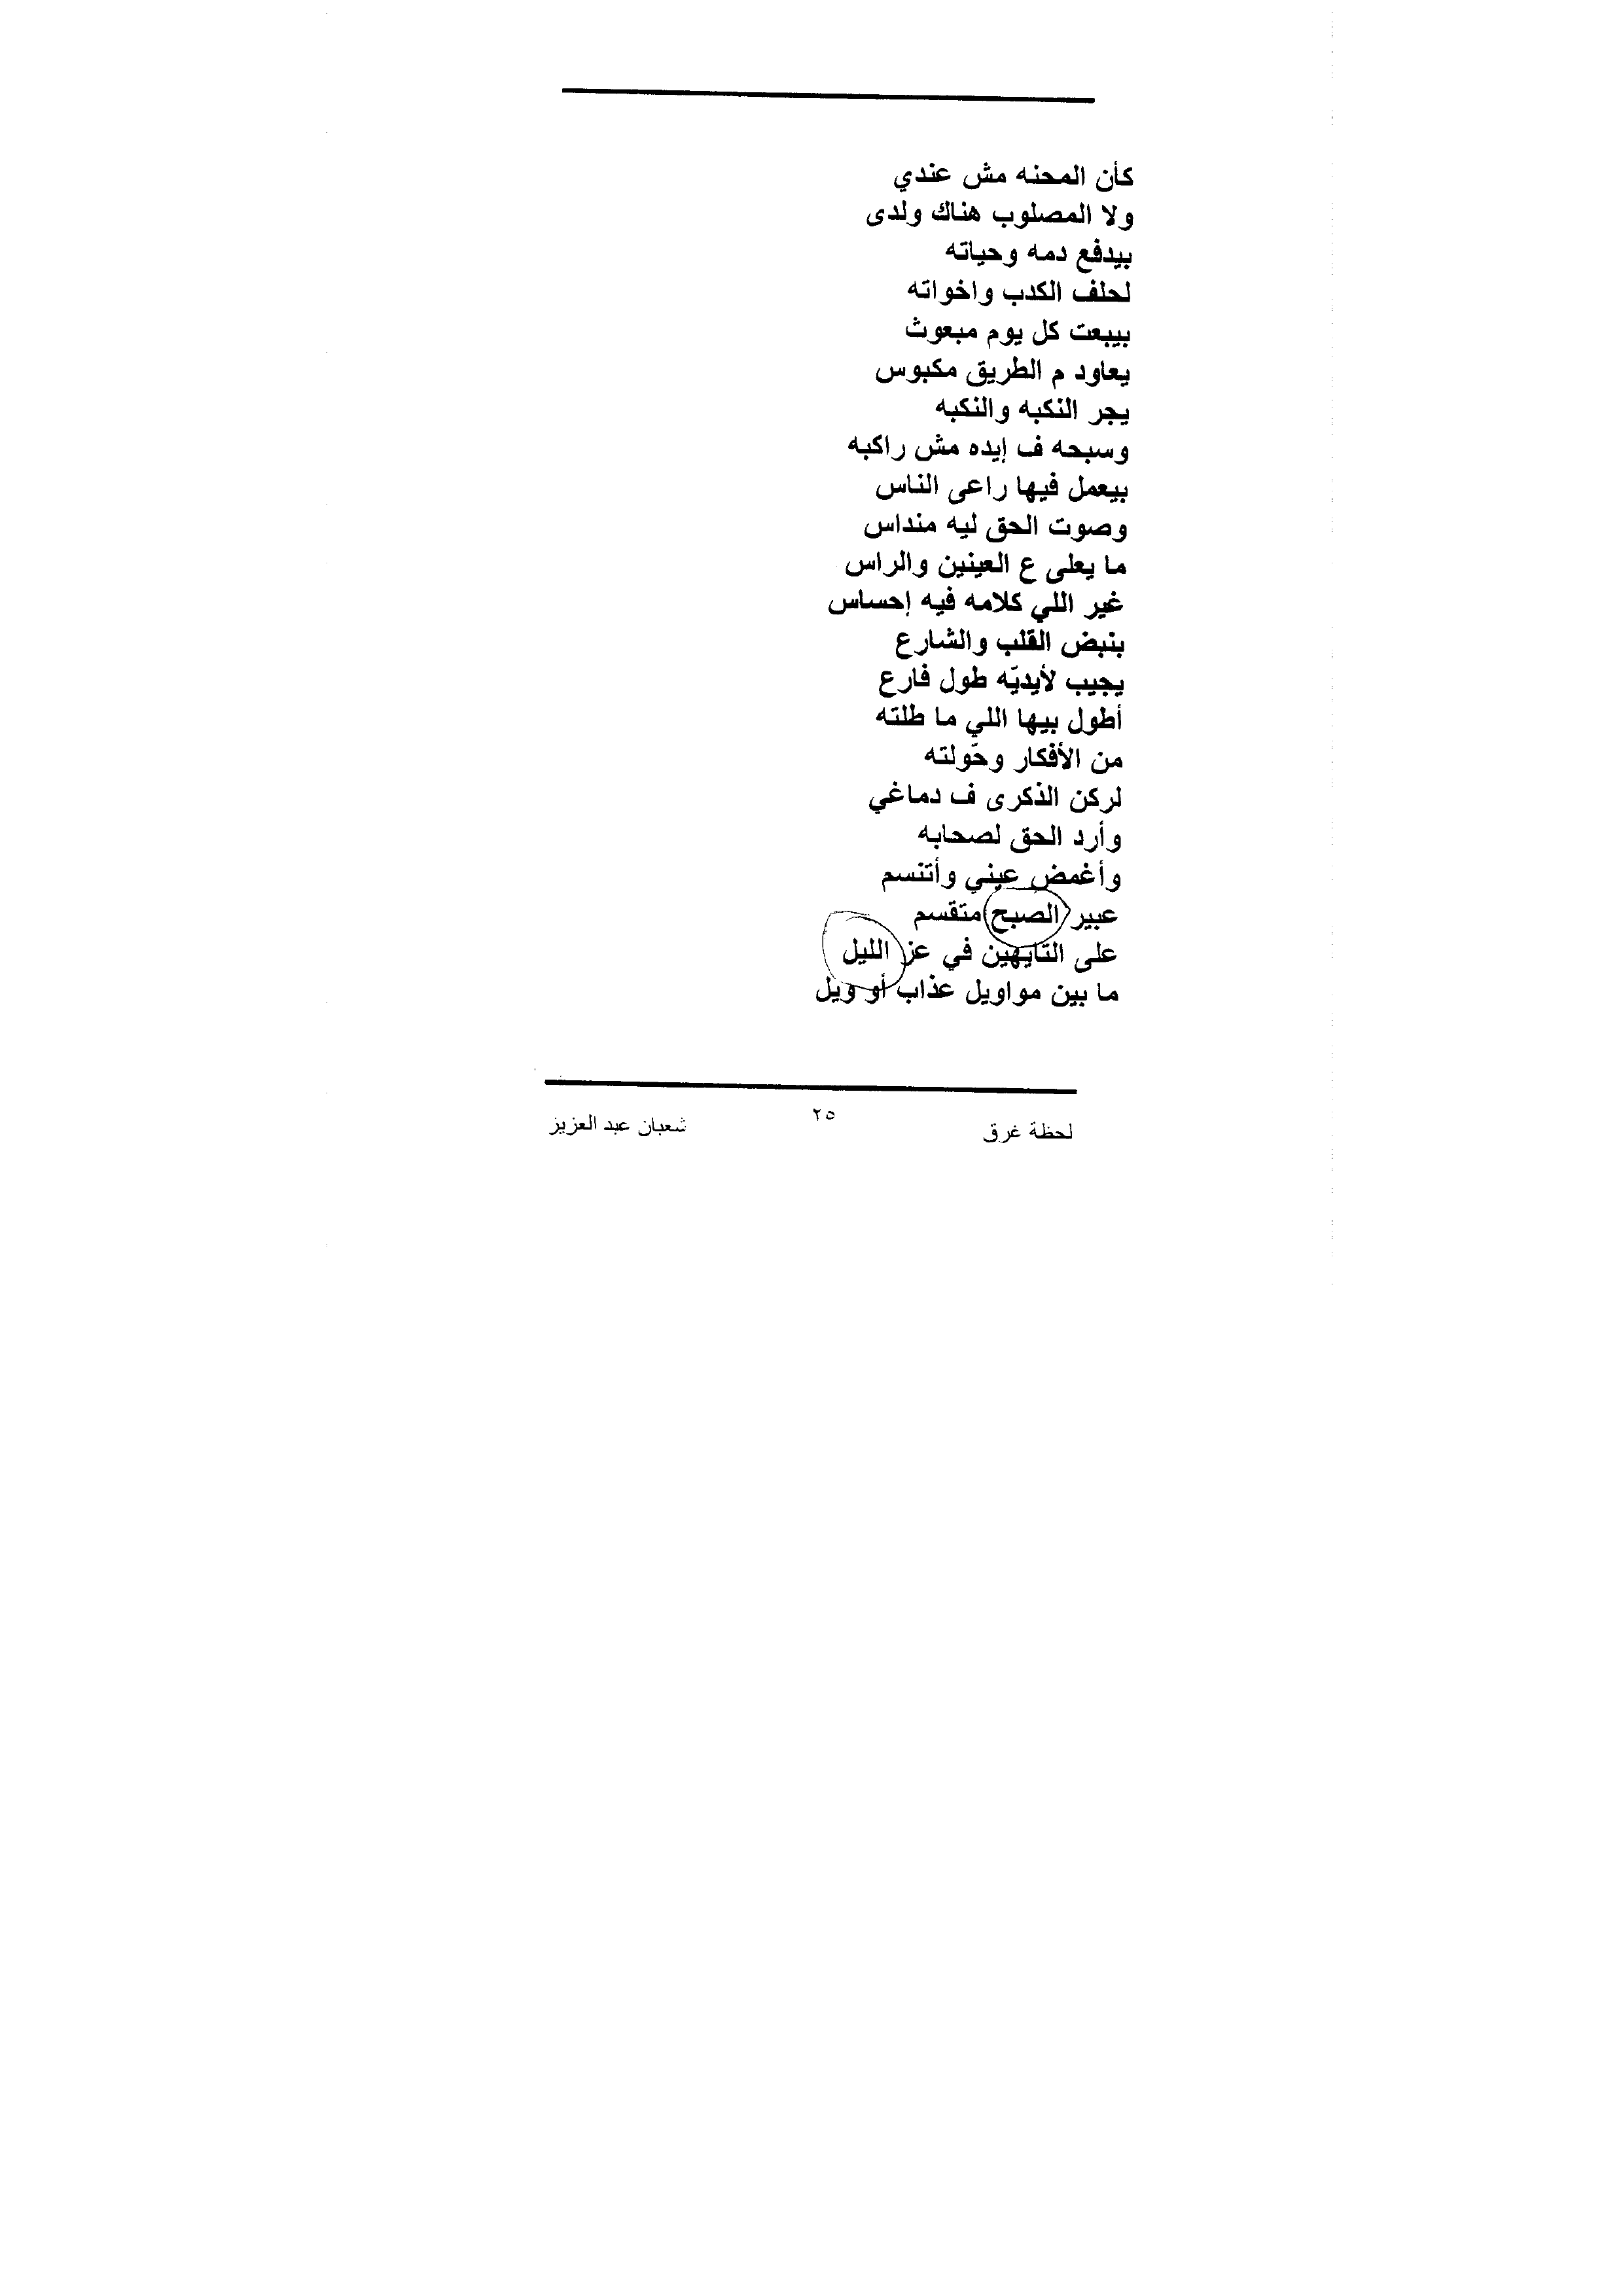 كأن المحنه مش عندي
ولا المصلوب هناك ولدى
بيدفع دمه وحياته
لحلف الكدب واخواته
بيبعت كل يوم مبعوث
يعاود م الطريق مكبوس
يجر النكبه والنكبه
وسبحه ف إيده مش راكبه
بيعمل فيها راعى الناس
وصوت الحق ليه منداس
ما يعلى ع العينين والراس
غير اللي كلامه فيه إحساس
بنبض القلب والشارع
يجيب لأيديّه طول فارع
أطول بيها اللي ما طلته
من الأفكار وحّولته
لركن الذكرى ف دماغي
وأرد الحق لصحابه
وأغمض عيني وأتنسم
عبير الصبح متقسم
على التايهين في عز الليل
ما بين مواويل عذاب أو ويل
لحظة غرق ٢٥ شعبان عبد العزيز